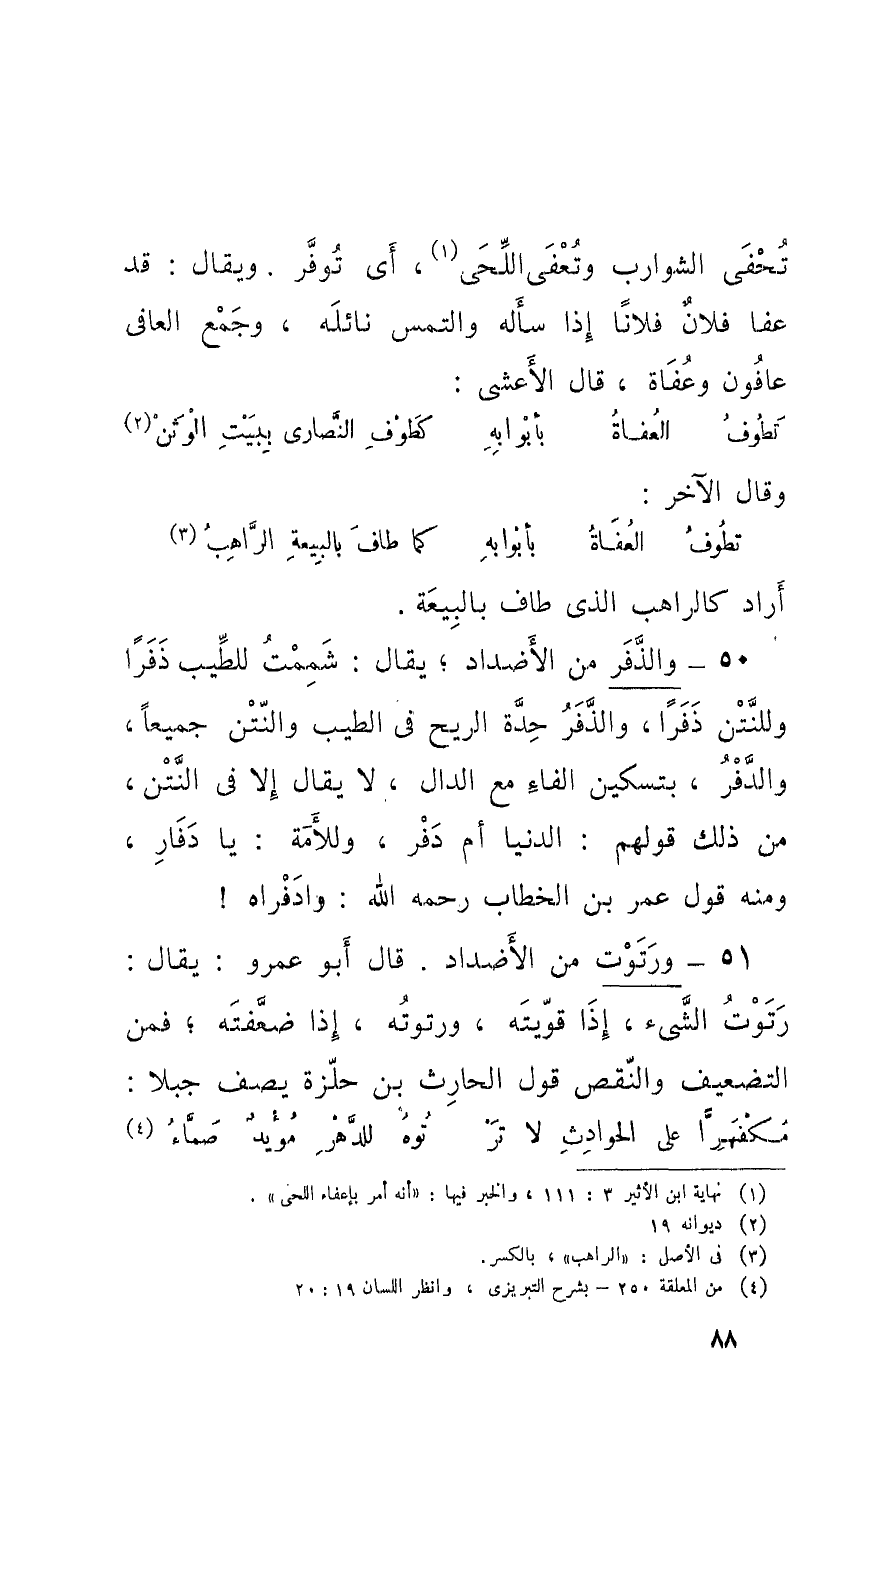 تُحْفَى الشوارب وتُعْفَى اللِّحَى(١) ، أَى تُوفَّر . ويقال : قد
عفا فلانٌ فلانًا إِذا سأَله والتمس نائلَه ، وجَمْع العافى
عافُون وعُفَاة ، قال الأَعشى :
تَطُوفُ العُفـاةُ بأَبْوابِهِ كَطَوْفِ النَّصارى بِبَيْتِ الْوَثنْ(٢)
وقال الآخر :
تطُوفُ العُفَـاةُ بأبْوابهِ كما طافَ بالبِيعةِ الرَّاهِبُ(٣)
أَراد كالراهب الذى طاف بالبِيعَة .
٥٠ ــ والذَّفَر من الأَضداد ؛ يقال : شَمِمْتُ للطِّيب ذَفَرًا
وللنَّتْن ذَفَرًا ، والذَّفَرُ حِدَّة الريح فى الطيب والنَّتْن جميعاً ،
والدَّفْرُ ، بتسكين الفاءِ مع الدال ، لا يقال إِلا فى النَّتْن ،
من ذلك قولهم : الدنيا أم دَفْر ، وللأَمة : يا دَفَارِ ،
ومنه قول عمر بن الخطاب رحمه الله : وادَفْراه !
٥١ ــ ورَتَوْت من الأَضداد . قال أَبو عمرو : يقال :
رَتَوْتُ الشَّىء ، إِذَا قوّيتَه ، ورتوتُه ، إِذا ضعَّفتَه ؛ فمن
التضعيف والنّقص قول الحارِث بن حلّزة يصف جبلا :
مُكْفَهِرًّا على الحوادِثِ لا تَرْ تُوهُ للدَّهْرِ مُؤْيِدٌ صَمَّاءُ (٤)
(١) نهاية ابن الأثير ٣ : ١١١ ، والخبر فيها : «أنه أمر بإعفاء اللحى» .
(٢) ديوانه ١٩
(٣) فى الأصل : «الراهب» ، بالكسر .
(٤) من المعلقة ٢٥٠ – بشرح التبريزى ، وانظر اللسان ١٩ : ٢٠
٨٨